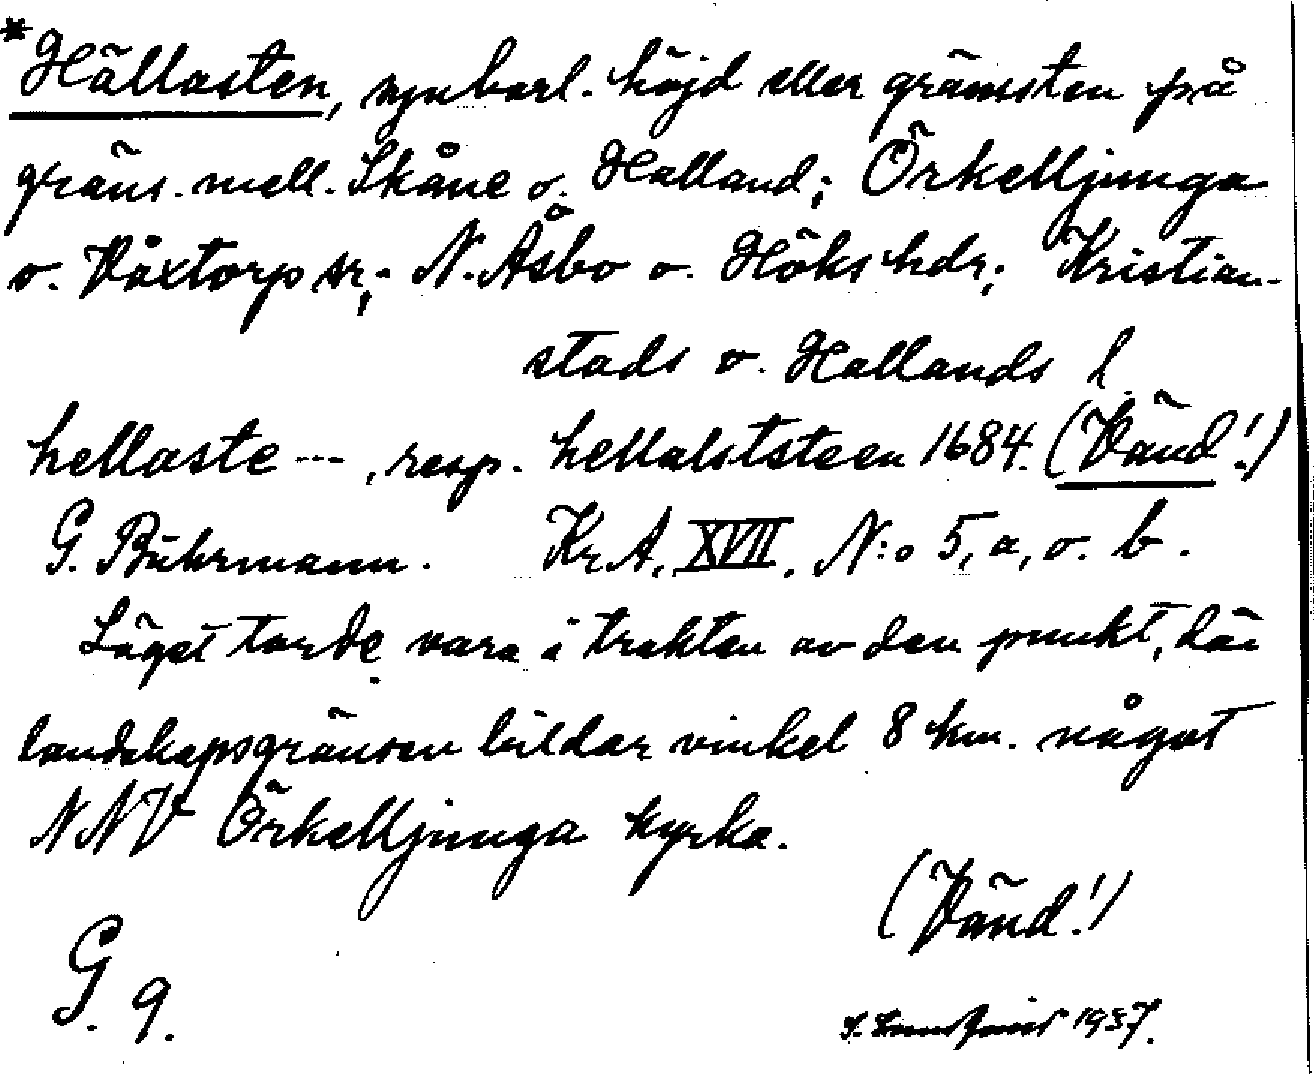 *Hällasten, synbarl. höjd eller gränssten på
gräns. mell. Skåne o. Halland; Örkelljunga
o. Våxtorp sr; N. Åsbo o. Höks hdr; Kristian-
stads o. Hallands l.
hellaste ---, resp. hellalststeen 1684. (Vänd!)
G. Buhrmann. Kr.A. XVII. N:o 5, a, o. b.
Läget torde vara i trakten av den punkt, där
landskapsgränsen bildar vinkel 8 km. något
NNV Örkelljunga kyrka.
(Vänd!)
G. 9.
1937.